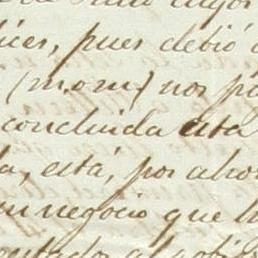 ices, pues debió
(mom) nos pa
concluida esta
a, está, por ahor
un negocio que h